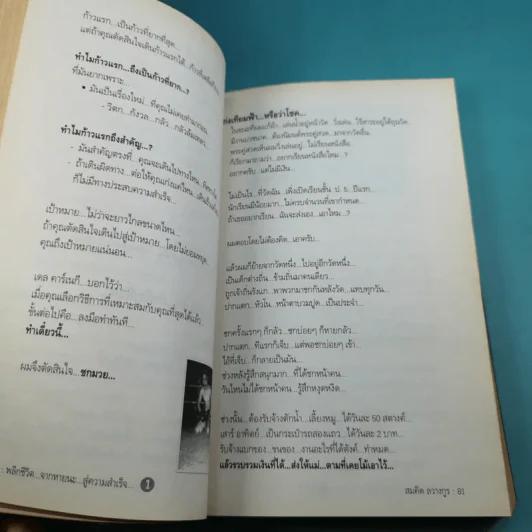 ก้าวแรก...เป็นก้าวที่ยากที่สุด...
แต่ถ้าคุณตัดสินใจเดินก้าวแรกได้..
ทำไมก้าวแรก...ถึงเป็นก้าวที่ยาก...?
ที่มันยากเพราะ...
• มันเป็นเรื่องใหม่...ที่คุณไม่เคยทำมาก่อน
- วิตก...กังวล...กลัว...กลัวล้มเหลว
ทำไมก้าวแรกถึงสำคัญ...?
- มันสำคัญตรงที่...คุณจะเดินไปทางไหน..
- ถ้าเดินผิดทาง...ต่อให้คุณเก่งแค่ไหน..
ก็ไม่มีทางประสบความสำเร็จ...
เป้าหมาย...ไม่ว่าจะยาวไกลขนาดไหน...
ถ้าคุณตัดสินใจเดินไปสู่เป้าหมาย...โดยไม่ยอมหยุด..
คุณถึงเป้าหมายแน่นอน...
เดล คาร์เนกี...บอกไว้ว่า...
เมื่อคุณเลือกวิธีการที่เหมาะสมกับคุณที่สุดได้แล้ว...
ขั้นต่อไปคือ...ลงมือทำทันที...
ทำเดี๋ยวนี้...
ผมจึงตัดสินใจ...ชกมวย...
: พลิกชีวิต...จากหายนะ...สู่ความสำเร็จ... 1
เทียมฟ้า...หรือว่าโชค...
พระกำลังเห็นผมวิ่งเล่นอยู่...ไม่เรียนหนังสือ
ก็เรียกมาถามว่า...อยากเรียนหนังสือไหม...?
อยากครับ...แต่ไม่มีเงิน...
ไม่เป็นไร...ที่วัดฉัน...เพิ่งเปิดเรียนชั้น ป. ๕...ปีแรก...
นักเรียนมีน้อยมาก...ไม่ครบจำนวนที่เขากำหนด...
ถ้าเธออยากเรียน...ฉันจะส่งเอง...เอาไหม...?
ผมตอบโดยไม่ต้องคิด...เอาครับ...
แล้วผมก็ย้ายจากวัดหนึ่ง...ไปอยู่อีกวัดหนึ่ง...
เป็นเด็กต่างถิ่น...ข้ามถิ่นมาคนเดียว...
ถูกเจ้าถิ่นรังแก...พาพวกมาชกกันหลังวัด...แทบทุกวัน...
ปากแตก...หัวโน...หน้าตาบวมปูด...เป็นประจำ...
ชกครั้งแรกๆ ก็กลัว...ชกบ่อยๆ ก็หายกลัว...
ปากแตก...ทีแรกก็เจ็บ...แต่พอชกบ่อยๆ เข้า...
ไอ้ที่เจ็บ...ก็กลายเป็นมัน...
ช่วงหลังรู้สึกสนุกมาก...ที่ได้ชกหน้าคน...
วันไหนไม่ได้ชกหน้าคน...รู้สึกหงุดหงิด...
ช่วงนั้น...ต้องรับจ้างตักน้ำ...เลี้ยงหมู...ได้วันละ 50 สตางค์...
เสาร์ อาทิตย์...เป็นกระเป๋ารถสองแถว...ได้วันละ 2 บาท...
รับจ้างแบกของ...ขนของ...งานอะไรที่ได้ตังค์...ทำหมด...
แล้วรวบรวมเงินที่ได้...ส่งให้แม่...ตามที่เคยไม้เอาไว้...
สมคิด ลวางกูร : 81